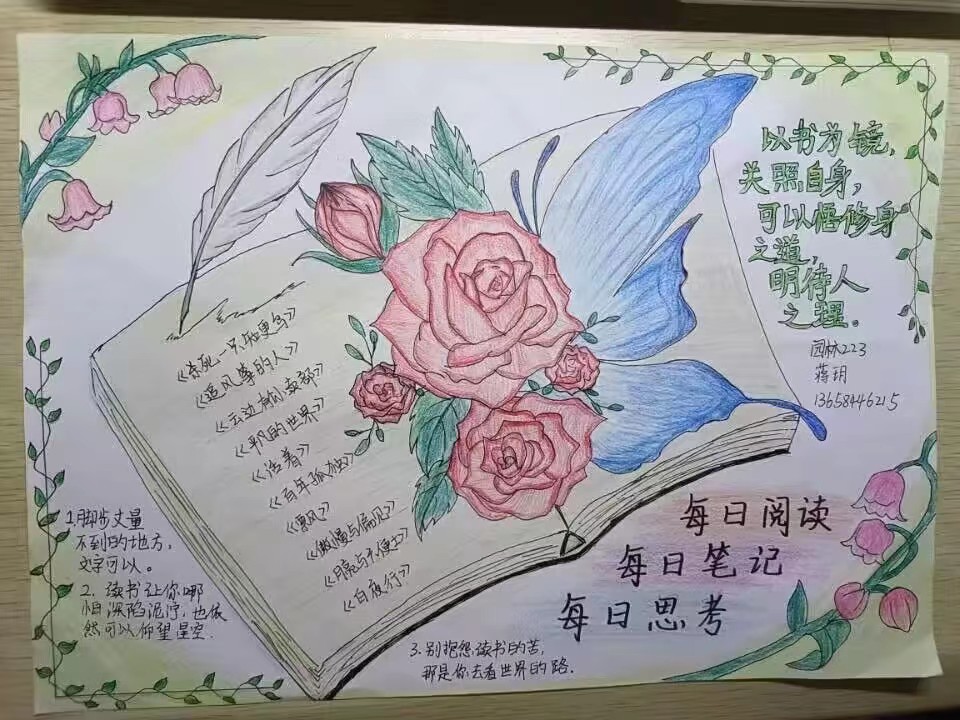 以书为镜，
关照自身，
可以悟修身
之道，
明待人
之理。
园林223
蒋玥
13658446215
《杀死一只知更鸟》
《追风筝的人》
《云边有个小卖部》
《平凡的世界》
《活着》
《百年孤独》
《飘》
《傲慢与偏见》
《月亮与六便士》
《白夜行》
1.脚步丈量
不到的地方，
文字可以。
2.读书让你哪
怕深陷泥泞，也依
然可以仰望星空.
每日阅读
每日笔记
每日思考
3.别抱怨读书的苦，
那是你去看世界的路.